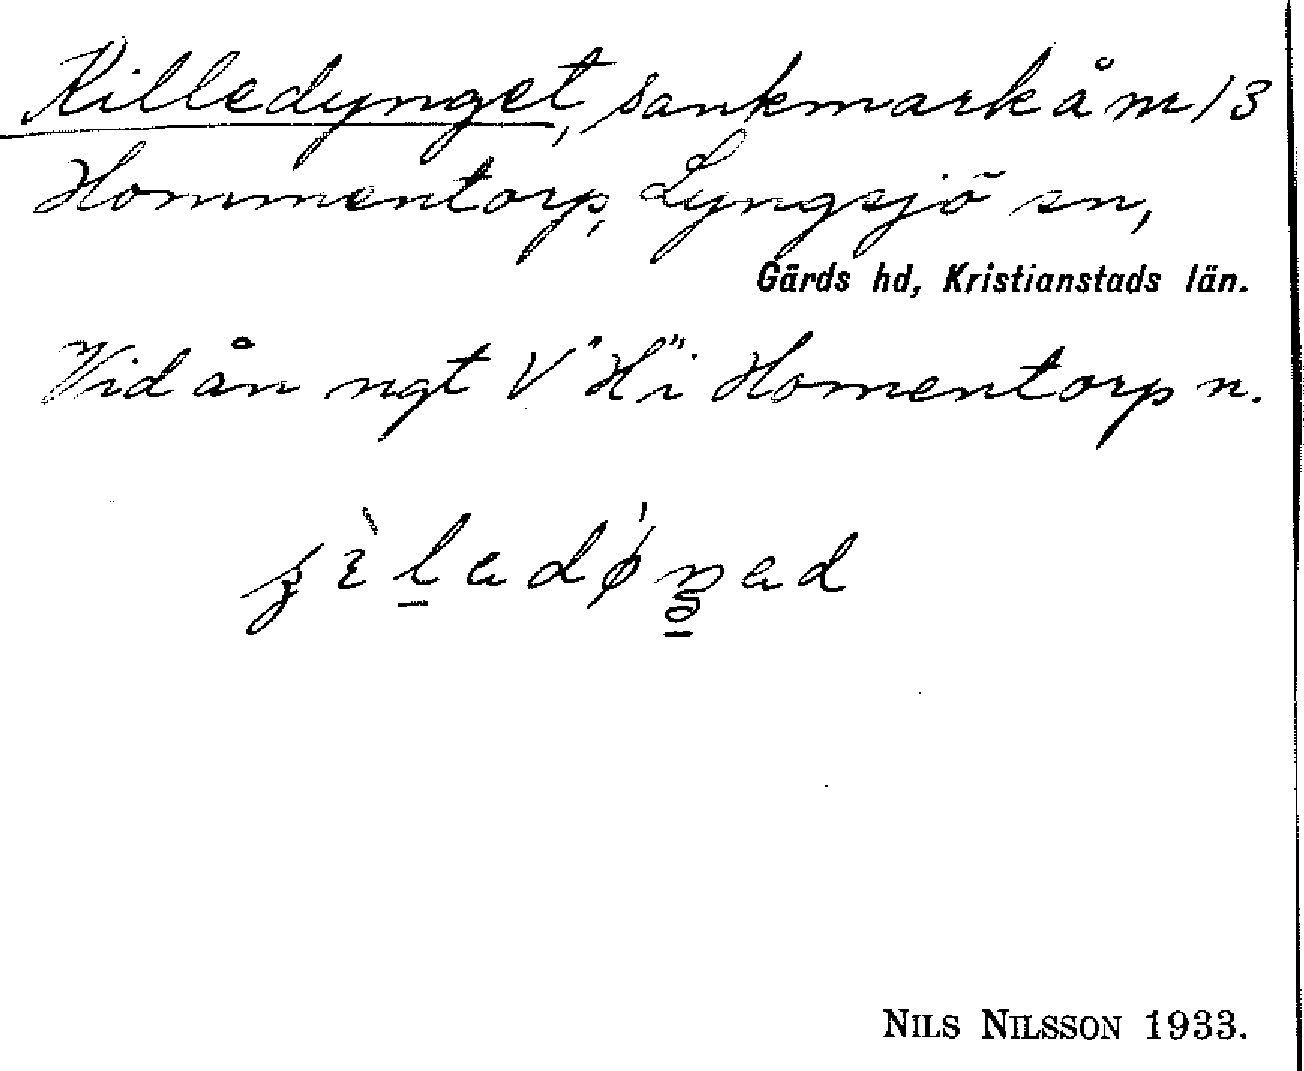 Killedynget, sankmark å nr 13
Hommentorp, Lyngsjö sn,
Gärds hd, Kristianstads län.
Vid ån ngt V "H" i Homentorp n.
NILS NILSSON 1933.